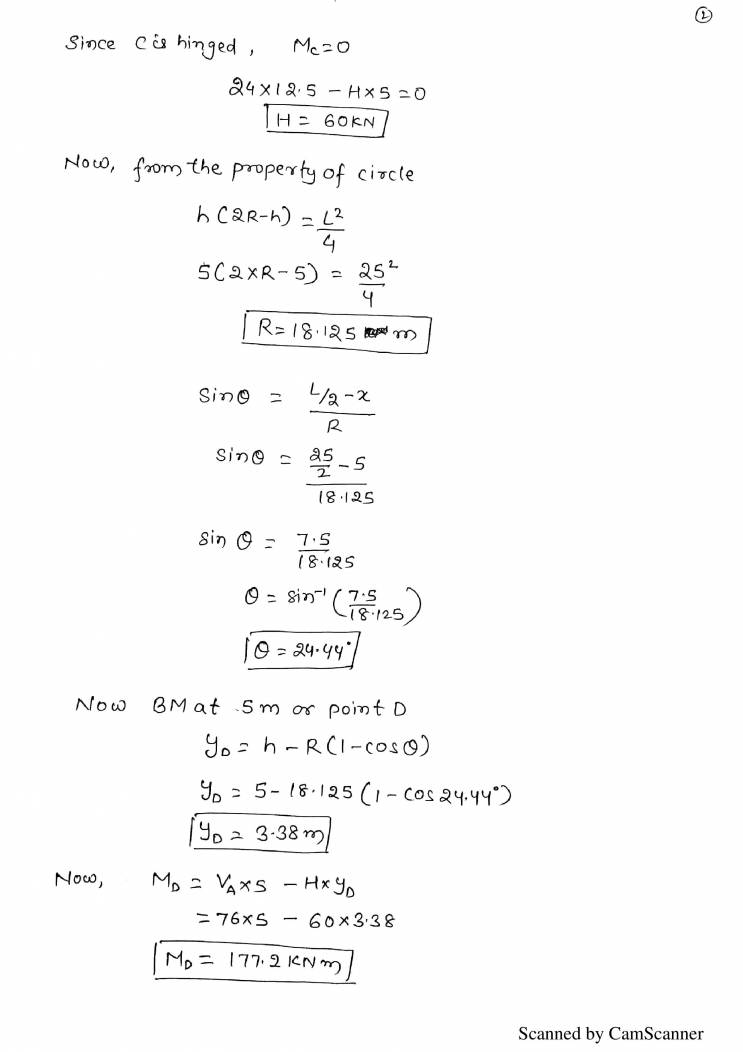 ②
Since C is hinged, Mc=0
24×12.5 – H×5 = 0
H = 60KN
Now, from the property of circle
h(2R-h) = L²/4
5(2×R-5) = 25²/4
R=18.125 m
Sinθ = L/2-x / R
Sinθ = 25/2 - 5 / 18.125
Sin θ = 7.5/18.125
θ = Sin⁻¹(7.5/18.125)
θ = 24.44°
Now BM at 5m or point D
y_D = h – R(1-cosθ)
y_D = 5-18.125(1-cos24.44°)
y_D = 3.38m
Now, M_D = V_A×5 – H×y_D
= 76×5 – 60×3.38
M_D = 177.2 KNm
Scanned by CamScanner